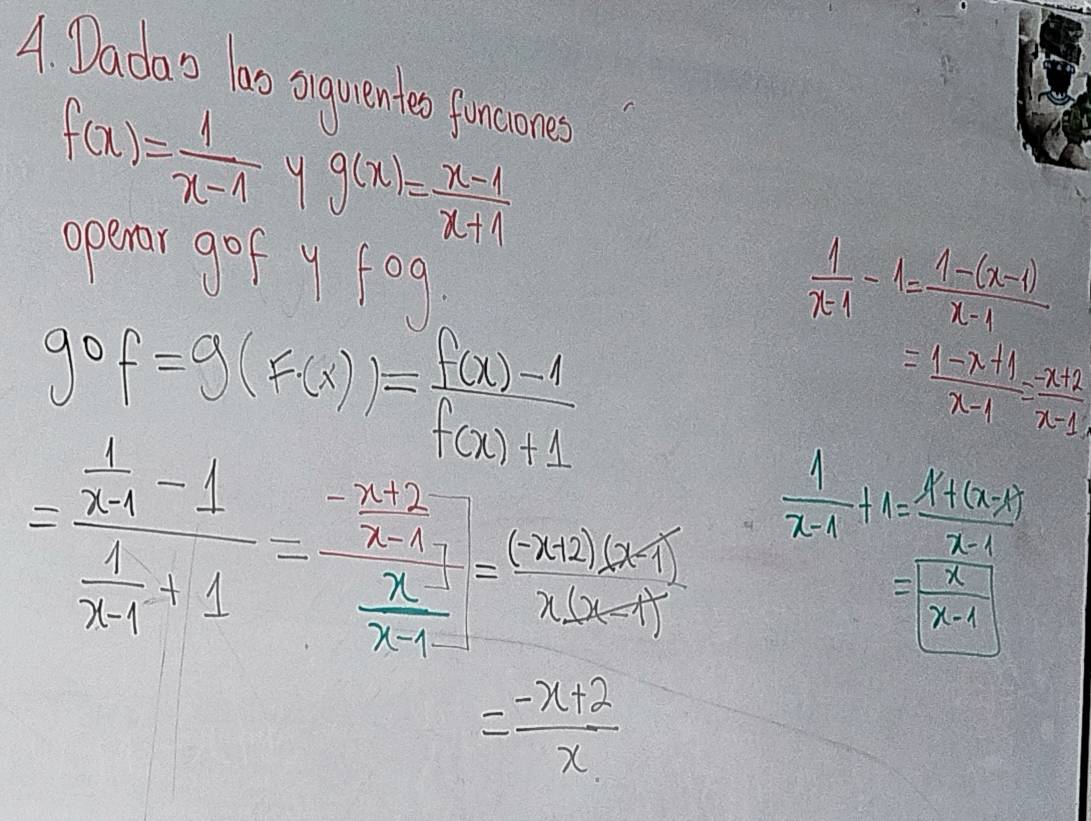 4. Dadas las siguientes funciones
f(x) = 1/(x-1) y g(x) = (x-1)/(x+1)
operar gof y fog.
gof = g(F.(x)) = (f(x)-1)/(f(x)+1)
= (1/(x-1) - 1)/(1/(x-1) + 1) = ((-x+2)/(x-1))/(x/(x-1)) = ((-x+2)(x-1))/(x(x-1))
= (-x+2)/x.
1/(x-1) - 1 = (1-(x-1))/(x-1)
= (1-x+1)/(x-1) = (-x+2)/(x-1)
1/(x-1) + 1 = (1+(x-1))/(x-1)
= x/(x-1)